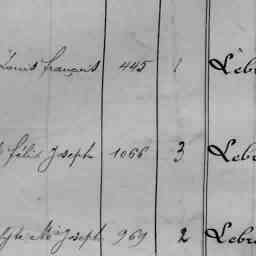 Louis françois 445 1 Leb
Félix Joseph 1066 3 Leb
Mie Joseph 969 2 Lebr